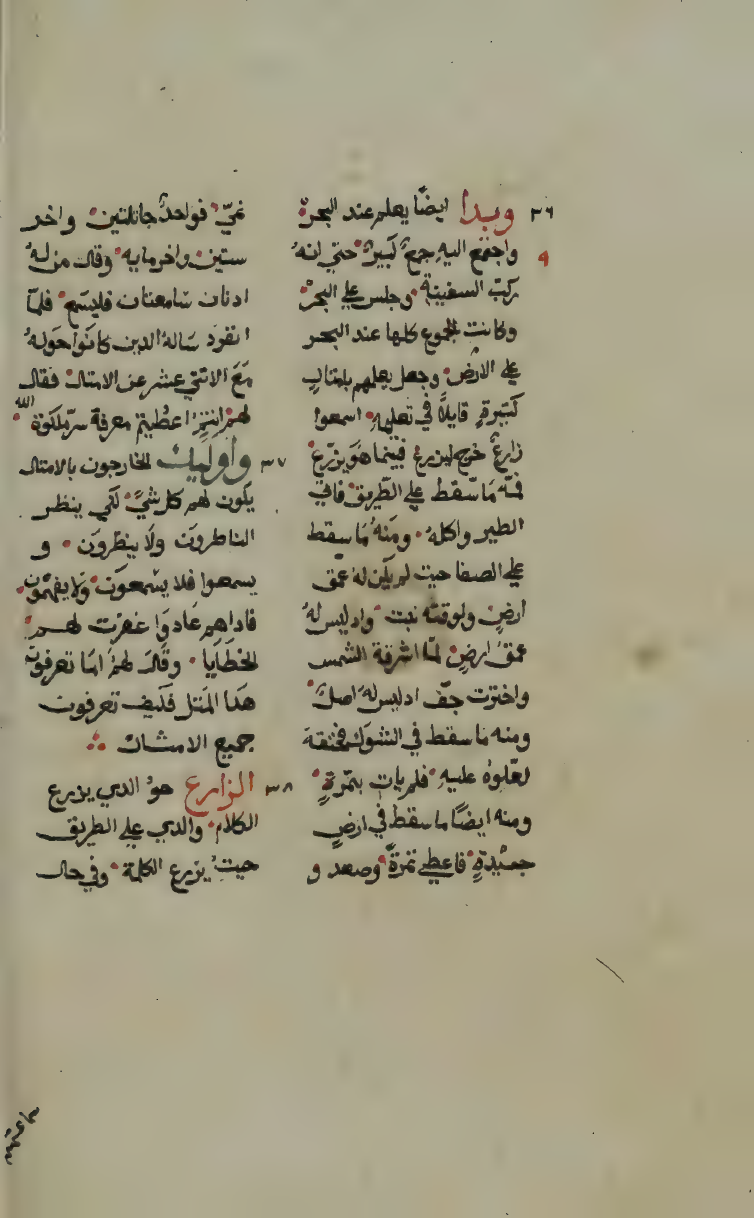 ٣٦ وبدا ايضًا يعلم عند البحرة
٩ واجتمع اليهِ جمعٌ كبيرٌ حتي انهُ
ركبَ السفينة وجلس علي البحرْ
وكانت الجموع كلها عند البحر
علي الارض وجعل يعلمهم بامتالٍ
كتيرةٍ قايلًا في تعليمهِ اسمعوا
زارعٌ خرج ليزرع فبينما هوَ يزرع
فمنه ما سقط علي الطريق فاتي
الطير واكلهُ ومنهُ ما سقط
علي الصفا حيت لم يكن له عمق
ارضٍ ولوقته نبت واد ليس لهُ
عمقُ ارضٍ لمّا اشرقة الشمس
واخترت جفّ اد ليس لهَ اصلٌ
ومنه ما سقط في الشوك فخنقهَ
لعلوهُ عليهِ فلم يات بتمرةٍ
ومنه ايضًا ما سقط في ارضٍ
جيّدةٍ فاعطي تمرةً وصعد و
نميّ فواحدٌ جا بتلتين واخر
ستين واخر مايه وقال من لهُ
ادنان سامعتان فليسمع فلمّا
انفرد سالهُ الدين كانوا حولهُ
معَ الاتني عشر عن الامتال فقال
لهم انتم اعطيتم معرفة سرّ ملكوة الله
٣٧ واوليك الخارجون بالامتال
يكون لهم كل شيً لكي ينظر
الناطرون ولا ينظرون و
يسمعوا فلا يسمعون ولا يفهمون
فاداهم عادوَا غفرت لهم
الخطَايا وقال لهمْ امَا تعرفون
هدا المتل فكيف تعرفون
جميع الامتال
٣٨ الزارع هوُ الدي يزرع
الكلام والدي علي الطريق
حيتُ يزرع الكلمة وفي حال